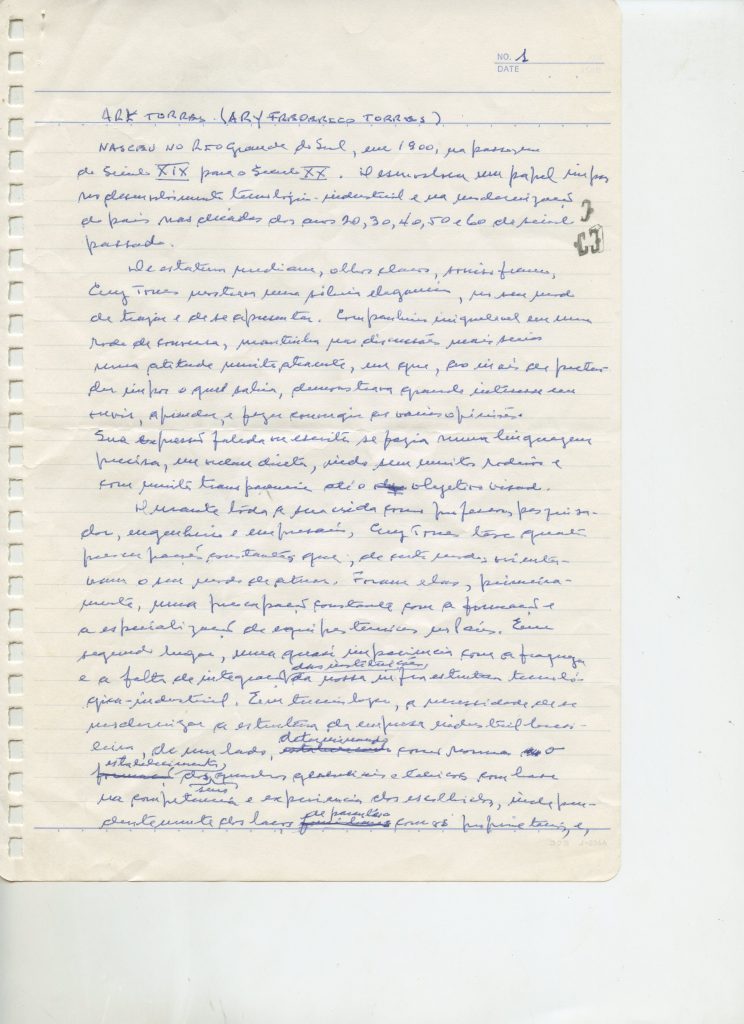 NO. 1
DATE
ARY TORRES (ARY FREDERICO TORRES)
NASCEU NO RIO Grande do Sul, em 1900, na passagem
do Século XIX para o Século XX. Desenvolveu um papel ímpar
no desenvolvimento tecnológico-industrial e na modernização
do país nas décadas dos anos 20, 30, 40, 50 e 60 do século
passado.
De estatura mediana, olhos claros, sorriso franco,
Eng Torres mostrava uma sóbria elegância, no seu modo
de trajar e de se apresentar. Companheiro inigualável em uma
roda de conversa, mantinha nas discussões mais sérias
uma atitude muito atraente, em que, ao invés de preten-
der impor o que sabia, demonstrava grande interesse em
ouvir, aprender, e fazer convergir as várias opiniões.
Sua expressão falada ou escrita se fazia numa linguagem
precisa, em ordem direta, indo sem muitos rodeios e
com muita transparência até o objetivo visado.
Durante toda a sua vida como professor, pesquisa-
dor, engenheiro e empresário, Eng Torres teve quatro
preocupações constantes que, de certo modo, orienta-
vam o seu modo de atuar. Foram elas, primeira-
mente, uma preocupação constante com a formação e
a especialização de equipes técnicas no País. Em
segundo lugar, uma quasi impaciência com a fraqueza
e a falta de integração das instituições da nossa infraestrutura tecnoló-
gica-industrial. Em terceiro lugar, a necessidade de se
modernizar a estrutura da empresa industrial brasi-
leira, de um lado, determinando como norma o
estabelecimento dos seus quadros gerenciais e técnicos com base
na competência e experiência dos escolhidos, indepen-
dentemente dos laços de parentesco com os proprietários, e,